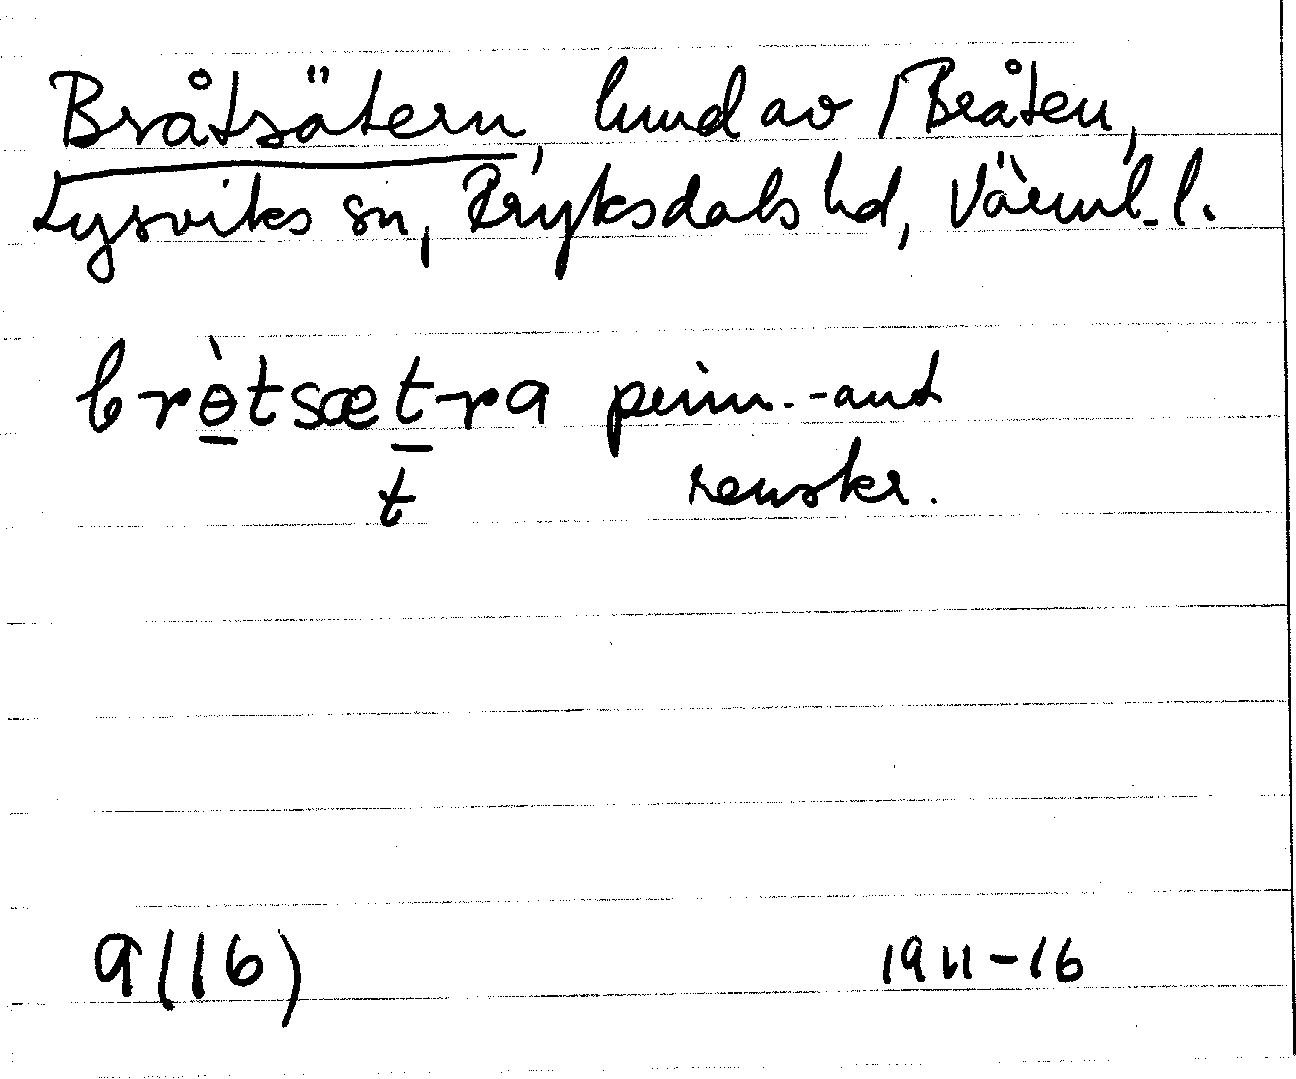 Bråtsätern, lund av / Bråten,
Lysviks sn, Fryksdals hd, Värml. l.
brɵ̀tsætra prim.-ant
t renskr.
9(16) 1911-16